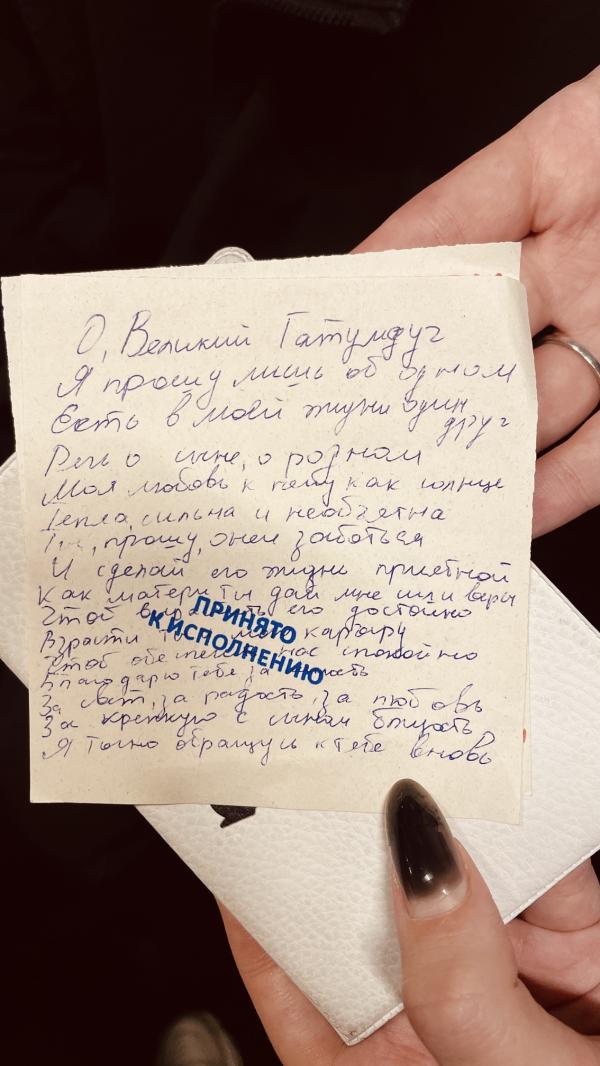 О, Великий Гатумдуг
Я прошу лишь об одном
Есть в моей жизни один
друг
Речь о сыне, о родном
Моя любовь к нему как солнце
Тепла, сильна и необъятна
Ты, прошу, о нем заботься
И сделай его жизнь приятной
Как матери ты дай мне сил и веры
Чтоб его достойно
Взрасти мою карьеру
Чтоб нас спокойно
Благодарю тебя за
За свет, за радость, за любовь
За крепкую с сыном близость
Я точно обращусь к тебе вновь
ПРИНЯТО
К ИСПОЛНЕНИЮ